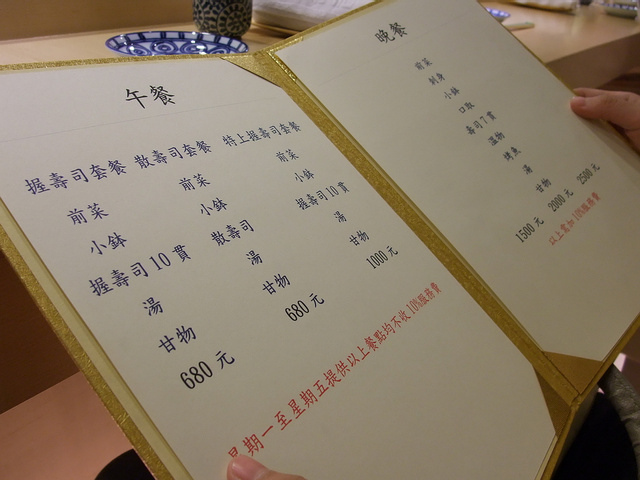 午餐
握壽司套餐 散壽司套餐 特上握壽司套餐
前菜 前菜 前菜
小鉢 小鉢 小鉢
握壽司10貫 散壽司 握壽司10貫
湯 湯 湯
甘物 甘物 甘物
680元 680元 1000元
星期一至星期五提供以上餐點均不收10%服務費
晚餐
前菜
刺身
小鉢
口取
壽司7貫
溫物
烤魚
湯
甘物
1500元 2000元 2500元
以上需加10%服務費